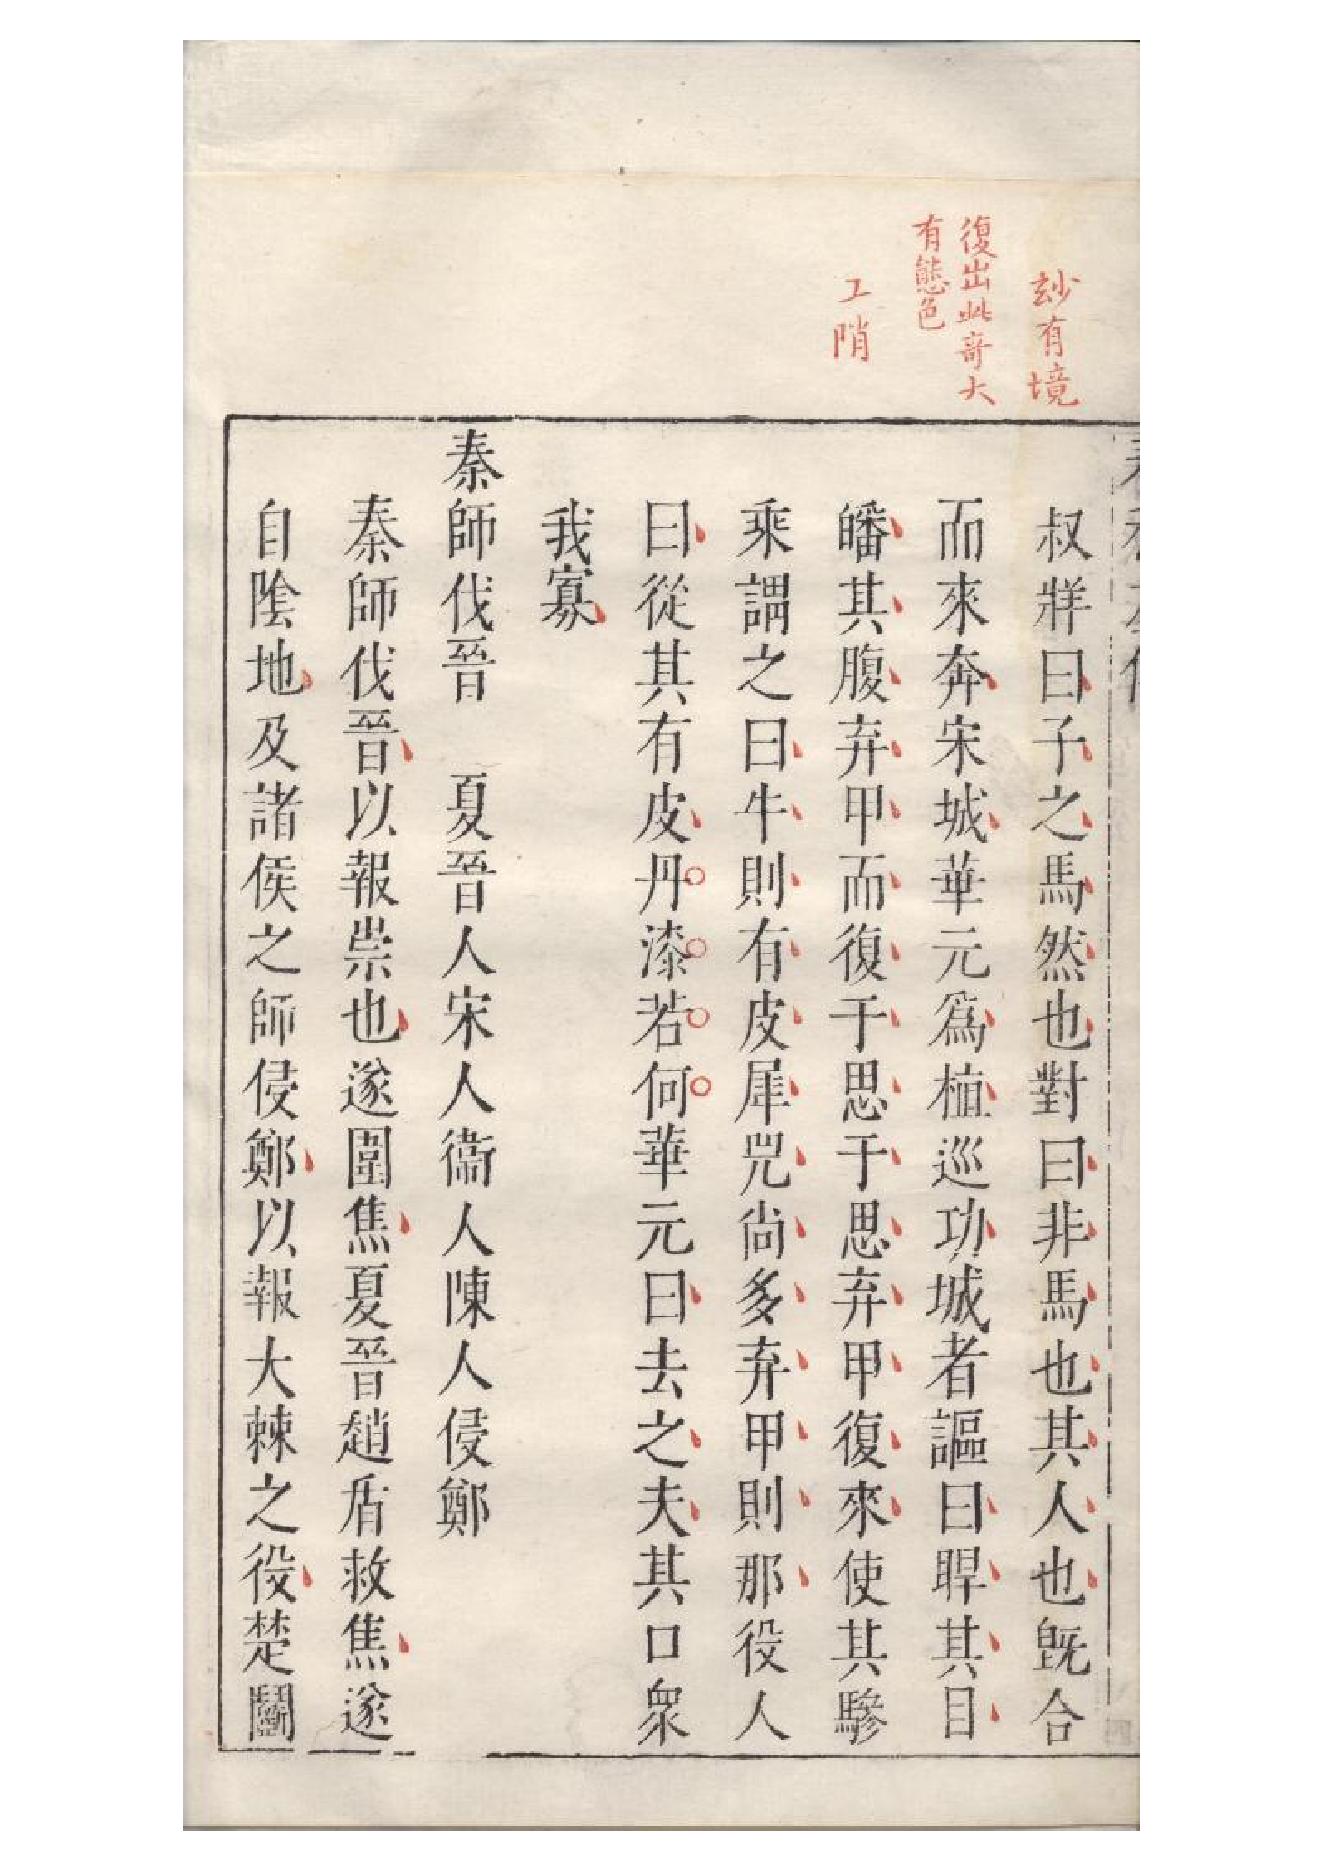 玅有境
復出此奇大
有態色
工陗
叔牂曰子之馬然也對曰非馬也其人也旣合
而來奔宋城華元爲植巡功城者謳曰睅其目
皤其腹弃甲而復于思于思弃甲復來使其驂
乘謂之曰牛則有皮犀兕尚多弃甲則那役人
曰從其有皮丹漆若何華元曰去之夫其口衆
我寡
秦師伐晉　夏晉人宋人衞人陳人侵鄭
秦師伐晉以報崇也遂圍焦夏晉趙盾救焦遂
自陰地及諸侯之師侵鄭以報大棘之役楚鬭